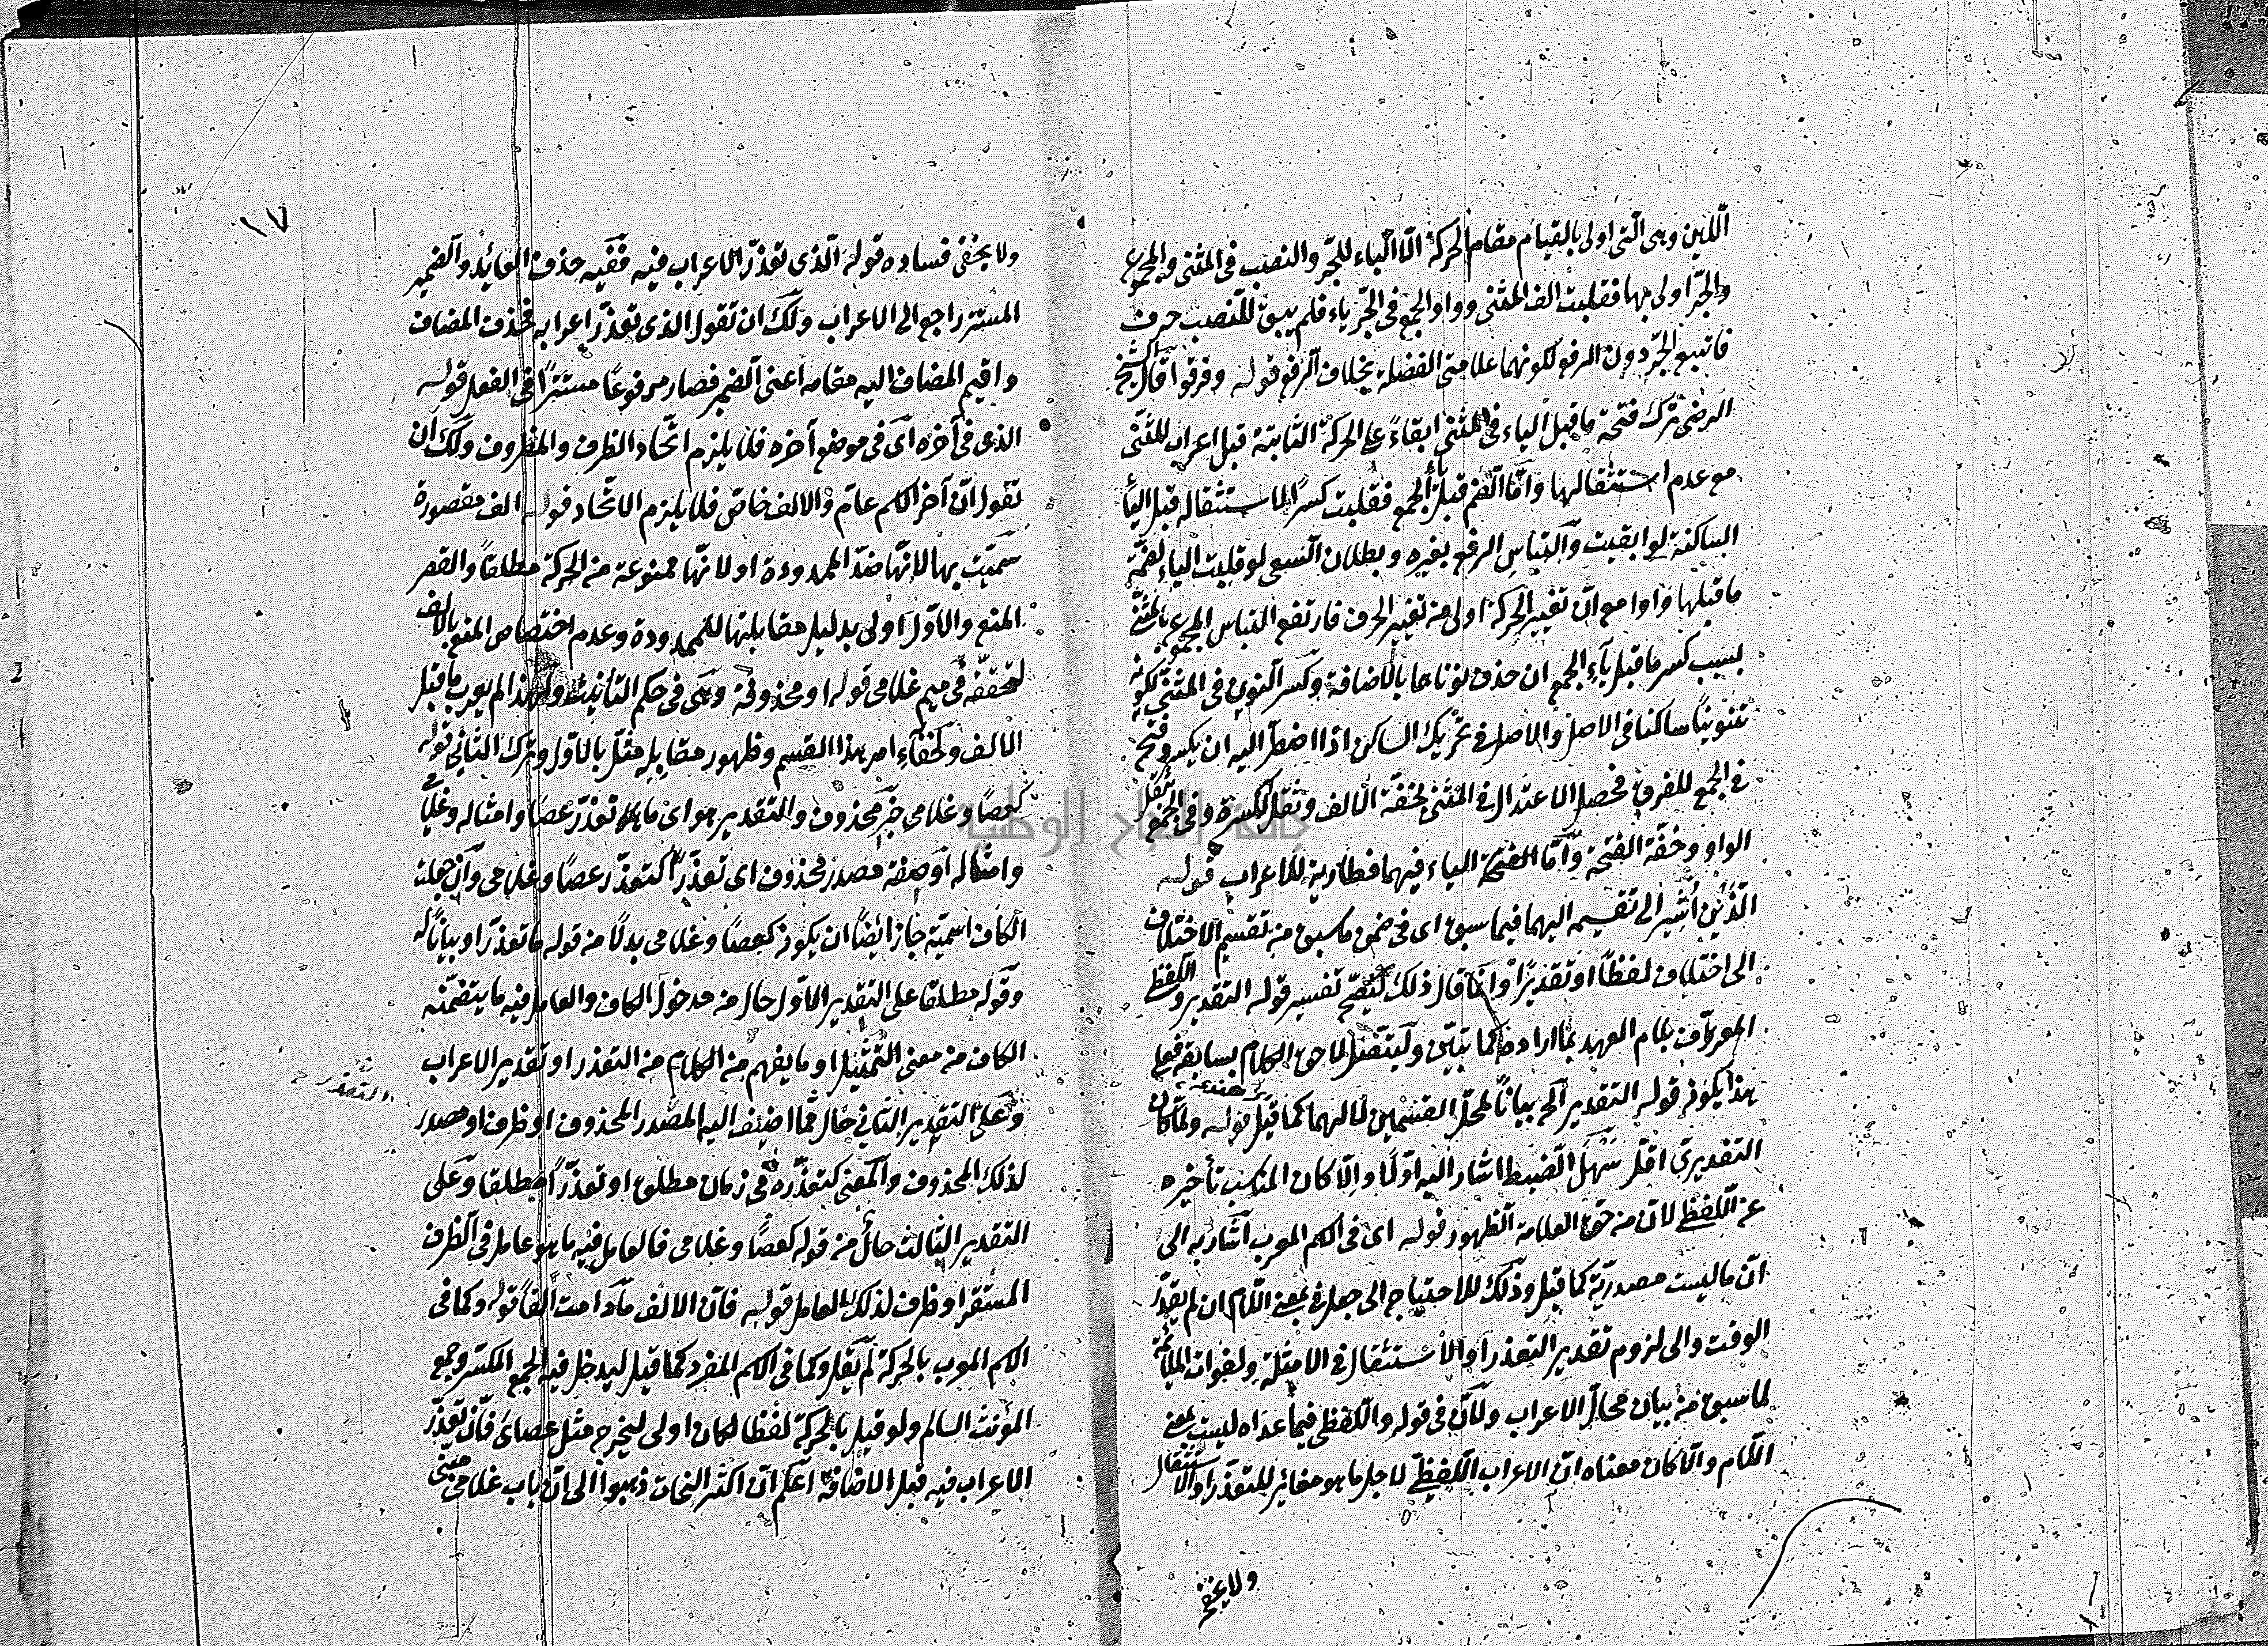 اللين وهى التى اولى بالقيام مقام الحركة الا الياء للجر والنصب فى المثنى والمجموع
والجر اولى بها فقلبت الف المثنى وواو الجمع فى الجر ياء فلم يبق للنصب حرف
فاتبع الجر دون الرفع لكونهما علامتى الفضلة بخلاف الرفع قوله وفرقوا قال الشيخ
الرضى ترك فتحة ما قبل الياء فى المثنى ابقاءً على الحركة الثابتة قبل اعراب المثنى
مع عدم استثقالها وامّا الضم قبل ياء الجمع فقلبت كسرًا لاستثقاله قبل الياء
الساكنة لو ابقيت والتباس الرفع بغيره وبطلان السعى لو قلبت الياء لضمة
ما قبلها واوا مع انّ تغيير الحركة اولى من تغيير الحرف فارتفع التباس المجموع بالمثنى
بسبب كسر ما قبل ياء الجمع ان حذف نوناهما بالاضافة وكسر النون فى المثنى لكونه
تنوينًا ساكنا فى الاصل والاصل فى تحريك الساكن اذا اضطر اليه ان يكسر وفتح
فى الجمع للفرق فحصل الاعتدال فى المثنى بخفة الالف وثقل الكسرة وفى الجمع بثقل
الواو وخفّة الفتحة وامّا الفتحة الياء فيهما فطارية للاعراب قوله
الّذَين أُشير الى تقسيمه اليهما فيما سبق اى فى ضمن ما سبق من تقسيم الاختلاف
الى اختلاف لفظًا او تقديرًا وانّما قال ذلك ليتضح تفسير قوله التقدير واللفظى
المعرّف بلام العهد بما اراده كما تبيّن وليتصل لاحق الكلام بسابقه فعلى
هذا يكون قوله التقدير آلخ بيانًا لمحلّ القسمين لا لهما كما قيل قوله ولمّا كان
التقديرى اقلّ سهل الضبط اشار اليه اوّلًا والّا كان المناسب تأخيره
عن اللفظى لانّ من حق العلامة الظهور قوله اى فى الاسم المعرب اشار به الى
انّ ما ليست مصدريّة كما قيل وذلك للاحتياج الى جعل فى بمعنى اللام ان لم يقدّر
الوقت والى لزوم تقدير التعذر او الاستثقال فى الامثلة ولفوات الملائمة
لما سبق من بيان محالّ الاعراب ولانّ فى قوله واللفظى فيما عداه ليست بمعنى
اللام والّا كان معناه انّ الاعراب اللفظىّ لاجل ما هو مغائر للتعذّر او الاستثقال
ولا يخفى
١٧
ولا يخفى فساده قوله الّذى تعذّر الاعراب فيه ففيه حذف العائد والضمير
المستتر راجع الى الاعراب ولك ان تقول الذى تعذّر اعرابه فحذف المضاف
واقيم المضاف اليه مقامه اعنى الضمير فصار مرفوعًا مستترًا فى الفعل قوله
الذى فى آخره اى فى موضع آخره فلا يلزم اتّحاد الظرف والمظروف ولك ان
تقول انّ آخر الاسم عامّ والالف خاصّ فلا يلزم الاتّحاد قوله الف مقصورة
سمّيت بها لانّها ضدّ الممدودة او لانّها ممنوعة من الحركة مطلقًا والقصر
المنع والاوّل اولى بدليل مقابلتها للممدودة وعدم اختصاص المنع بالالف
لتحققه فى ميم غلامى قوله او محذوفة وهى فى حكم الثابت ولهذا لم يعرب ما قبل
الالف ولخفاء امر هذا القسم وظهور مقابله مثّل بالاوّل وترك الثانى قوله
كعصًا وغلامى خبر محذوف والتقدير هو اى ما تعذّر عصًا وامثاله وغلامى
وامثاله او صفة مصدر محذوف اى تعذّرًا كتعذّر عصًا وغلامى وان جعلت
الكاف اسميّة جاز ايضًا ان يكون كعصًا وغلامى بدلًا من قوله ما تعذّر او بيانًا له
وقوله مطلقا على التقدير الاوّل حال من مدخول الكاف والعامل فيه ما يتضمّنه
الكاف من معنى التمثيل او ما يفهم من الكلام من التعذر او تقدير الاعراب
التعذر
وعلى التقدير الثانى حال ممّا اضيف اليه المصدر المحذوف او ظرف او مصدر
لذلك المحذوف والمعنى كتعذّره فى زمان مطلق او تعذّرًا مطلقا وعلى
التقدير الثالث حال من قوله كعصًا وغلامى فالعامل فيه ما هو عامل فى الظرف
المستقر او ظرف لذلك العامل قوله فانّ الالف ما دامت الفًا قوله وكما فى
الاسم المعرب بالحركة لم يقل وكما فى الاسم المفرد كما قيل ليدخل فيه الجمع المكسّر وجمع
المؤنث السالم ولو قيل بالحركة لفظا لكان اولى ليخرج مثل عصاى فانّ تعذّر
الاعراب فيه قبل الاضافة اعلم انّ اكثر النحات ذهبوا الى انّ باب غلامى مبنى